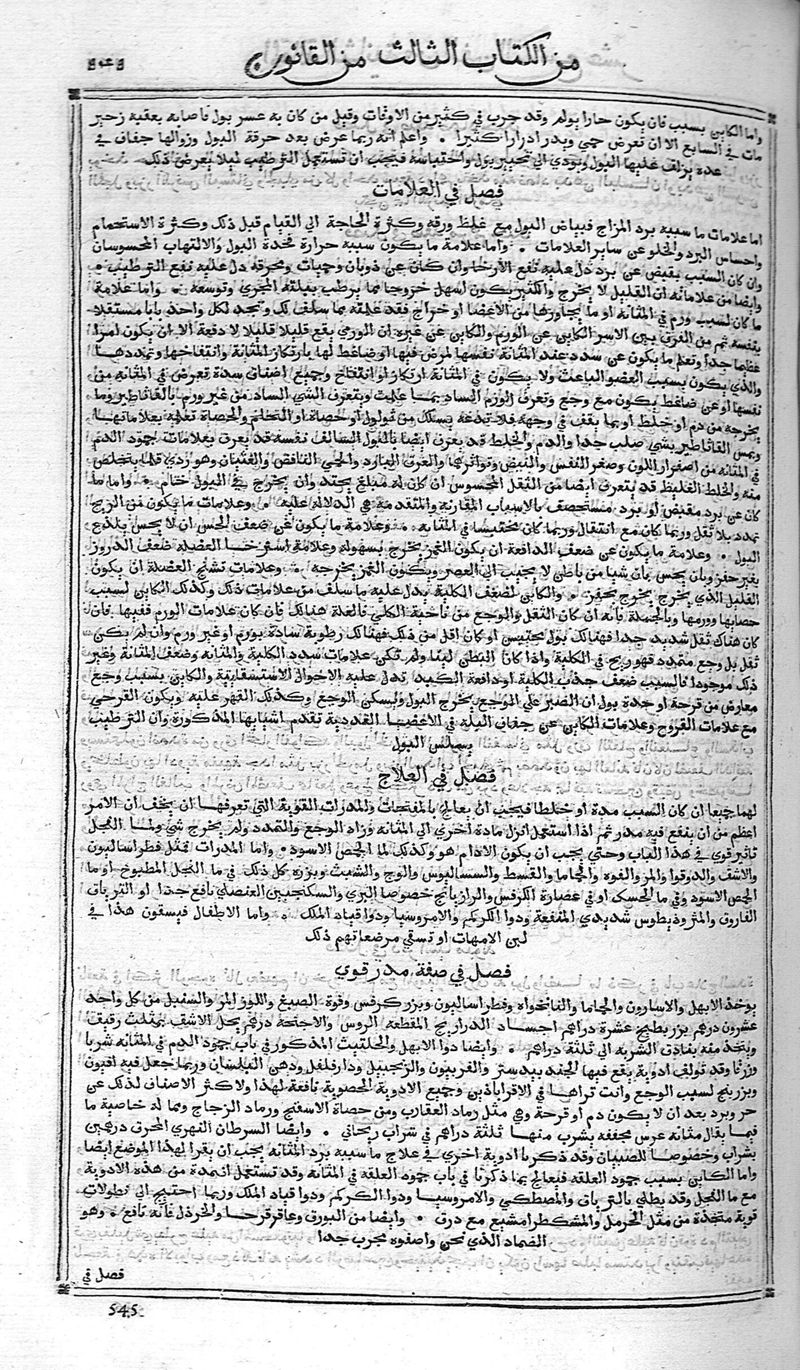 من الكتاب الثالث من القانون
واما الكاين بسبب فان يكون حارا بولم وقد جرب في كثير من الاوقات وقيل من كان به عسر بول فاصابه بعقبه زحير
مات في السابع الا ان تعرض حمي ويدر ادرارا كثيرا . واعلم انه ربما عرض بعد حرقة البول وزوالها جفاف في
غدة يزلف عليها البول ويودي الي تحيير بول واحتباسه فيجب ان تستعمل الترطيب ليلا يعرض ذلك
فصل في العلامات
اما علامات ما سببه برد المزاج فبياض البول مع غلظ ورقه وكثرة الحاجة الي القيام قبل ذلك وكثرة الاستحمام
واحساس البرد والخلو عن ساير العلامات . واما علامة ما يكون سببه حرارة فحدة البول والالتهاب المحسوسان
وان كان السبب يقبض عن برد دل عليه نفع الارخا وان كان عن ذوبان وحميات ومحرقة دل عليه نفع الترطيب .
وايضا من علاماته ان القليل لا يخرج والكثير يكون اسهل خروجا مما يرطب بفلقه المجري وتوسعه . واما علامة
ما كان لسبب ورم في المثانة او ما يجاورها من الاعضا او خراج فقد علمته بما سلف لك وتجد لكل واحد بابا مستقلا
بنفسه ثم من الفرق بين الاسر الكاين عن الورم والكاين عن غيره ان الورمي يقع قليلا قليلا لا دفعة الا ان يكون امرا
عظيما جدا وتعلم ما يكون عن سدد عند المثانة نفسها لمرض فيها او ضاغط لها بارتكاز المثانة وانتفاخها وتمددها
والذي يكون بسبب العضو الباعث ولا يكون في المثانة ارتكاز او انتفاخ وجميع اصناف سدة تعرض في المثانة من
نفسها او عن ضاغط يكون مع وجع وتعرف الورم الساد بما علمت ويتعرف الشي الساد من غير ورم بالقاثاطير وما
يخرجه من دم او خلط او بما يقف في وجهه فلا تدعه يسلك من ثولول او حصاة او التحام والحصاة تعلمه بعلاماتها
وبمس القاثاطير بشي صلب جدا والدم والخلط قد يعرف ايضا بالبول السالف نفسه قد يعرف بعلامات جمود الدم
في المثانة من اصفرار اللون وصغر النفس والنبض وتواترهما والعرق البارد والحمي النافض والغثيان وهو ردي قلما يتخلص
منه والخلط الغليظ قد يتعرف ايضا من الثقل المحسوس ان كان له مبلغ يعتد وان يخرج في البول ختام . واما ما
كان عن برد مقبض او برد مستحصف بالاسباب المقارنة والمتقدمة هي الدلالة عليه . وعلامات ما يكون من الريح
تمدد بلا ثقل وربما كان مع انتقال وربما كان محتبسا في المثانة . وعلامة ما يكون عن ضعف الحس ان لا يحس بلذع
البول . وعلامة ما يكون عن ضعف الدافعة ان يكون الغمز يخرج بسهولة وعلامة استرخا العضلة ضعف الدروز
بغير حفز وبان يحس بان شيا من باطن لا يجيب الي العصر ويكون الغمز يخرجه . وعلامات تشنج العضلة ان يكون
القليل الذي يخرج يخرج بحفز . والكاين لضعف الكلية يدل عليه ما سلف من علامات ذلك وكذلك الكاين لسبب
حصاتها وورمها وبالجملة فانه ان كان الثقل والوجع من ناحية الكلي فالعلة هنالك فان كان علامات الورم ففيها . فان
كان هناك ثقل شديد جدا فهنالك بول محتبس او كان اقل من ذلك فهنالك رطوبة سادة بورم او غير ورم وان لم يكن
ثقل بل وجع متمدد فهو ريح في الكلية واذا كان البطن لينا ولم تكن علامات سدد الكلية والمثانة وضعف المثانة وغير
ذلك موجودا فالسبب ضعف جذب الكلية او دافعة الكبد تدل عليه الاحوال الاستسقايية والكاين بسبب وجع
معارض من قرحة او حدة بول ان الصبر علي الوجع يخرج البول وتسكن الوجع وكذلك القهر عليه ويكون القرحي
مع علامات القروح وعلامات الكاين عن جفاف البلة في الاعضا الغددية تقدم اسبابها المذكورة وان الترطيب
يسلس البول
فصل في العلاج
لهما جميعا ان كان السبب مدة او خلطا فيجب ان يعالج بالمفتحات والمدرات القوية التي تعرفها ان يخف ان الامر
اعظم من ان ينفع فيه مدر ثم اذا استعمل انزل مادة اخري الي المثانة وزاد الوجع والتمدد ولم يخرج شي ولما الفجل
تاثير قوي في هذا الباب وحتي يجب ان يكون الادام هو وكذلك لما الحمص الاسود . واما المدرات فمثل فطراساليون
والاشق والدوقوا والمر والفوه والحاما والقسط والسساليوس والوج والشبت وبزره كل ذلك في ما الفجل المطبوخ او ما
الحمص الاسود وفي ما الحسك او في عصارة الكرفس والرازيانج خصوصا البري والسكنجبين العنصلي نافع جدا او الترياق
الفاروق والمثروذيطوس شديدي المنفعة ودوا الكركم والامروسيا ودوا قباد الملك . واما الاطفال فيسقون هذا في
لبن الامهات او تسقي مرضعاتهم ذلك
فصل في صفة مدر قوي
يوخذ الابهل والاسارون والحاما والنانخواه وفطراساليون وبزر كرفس وفوة الصبغ واللوز المر والسنبل من كل واحد
عشرون درهم بزر بطيخ عشرة دراهم اجساد الذراريح المقطعة الروس والاجنحة درهم يحل الاشق بمثلث رقيق
ويتخذ منه بنادق الشربة الي ثلثة دراهم . وايضا دوا الابهل والحلتيت المذكور في باب جمود الدم في المثانة شربا
وزرقا وقد تولف ادوية يقع فيها الجندبيدستر والفربيون والزنجبيل ودار فلفل ودهن البلسان وربما جعل فيه افيون
وبزر بنج لسبب الوجع وانت تراها في الاقراباذين وجميع الادوية الحصوية نافعة لهذا ولاكثر الاصناف لذلك عن
حر وبرد بعد ان لا يكون دم او قرحة وهي مثل رماد العقارب ومن حصاة الاسفنج ورماد الزجاج ومما له خاصية ما
فيما يقال مثانة عرس مجففه يشرب منها ثلثة دراهم في شراب ريحاني . وايضا السرطان النهري المحرق درهمين
بشراب وخصوصا للصبيان وقد ذكرنا ادوية اخري في علاج ما سببه برد المثانة يجب ان يقرا لهذا الموضع ايضا
واما الكاين بسبب جمود العلقة فيعالج بما ذكرنا في باب جمود العلقة في المثانة وقد تستعمل اضمدة من هذه الادوية
مع ما الفجل وقد يطلي بالترياق والمصطكي والامروسيا ودوا الكركم ودوا قباد الملك وربما احتيج الي نطولات
قوية متخذة من مثل الحرمل والمشكطرامشيع مع درق . وايضا من البورق وعاقرقرحا والخردل فانه نافع . وهو
الضماد الذي نحن واصفوه مجرب جدا
فصل في
545